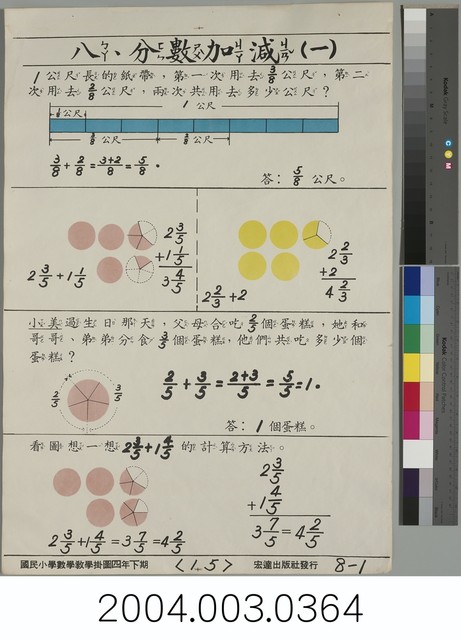 八、分數加減(一)
1公尺長的紙帶,第一次用去3/8公尺,第二
次用去2/8公尺,兩次共用去多少公尺?
1公尺
1/8公尺
3/8公尺
2/8公尺
3/8+2/8=3+2/8=5/8。
答:5/8公尺。
2 3/5
+1 1/5
3 4/5
2 3/5+1 1/5
2 2/3
+2
4 2/3
2 2/3+2
小美過生日那天,父母合吃2/5個蛋糕,她和
哥哥、弟弟分食3/5個蛋糕,他們共吃多少個
蛋糕?
2/5
3/5
2/5+3/5=2+3/5=5/5=1。
答:1個蛋糕。
看圖想一想2 3/5+1 4/5的計算方法。
2 3/5
+1 4/5
3 7/5=4 2/5
2 3/5+1 4/5=3 7/5=4 2/5
國民小學數學教學掛圖四年下期
<1.5>
宏達出版社發行
8-1
Kodak Gray Scale
C
Y
M
Kodak Color Control Patches
2004.003.0364